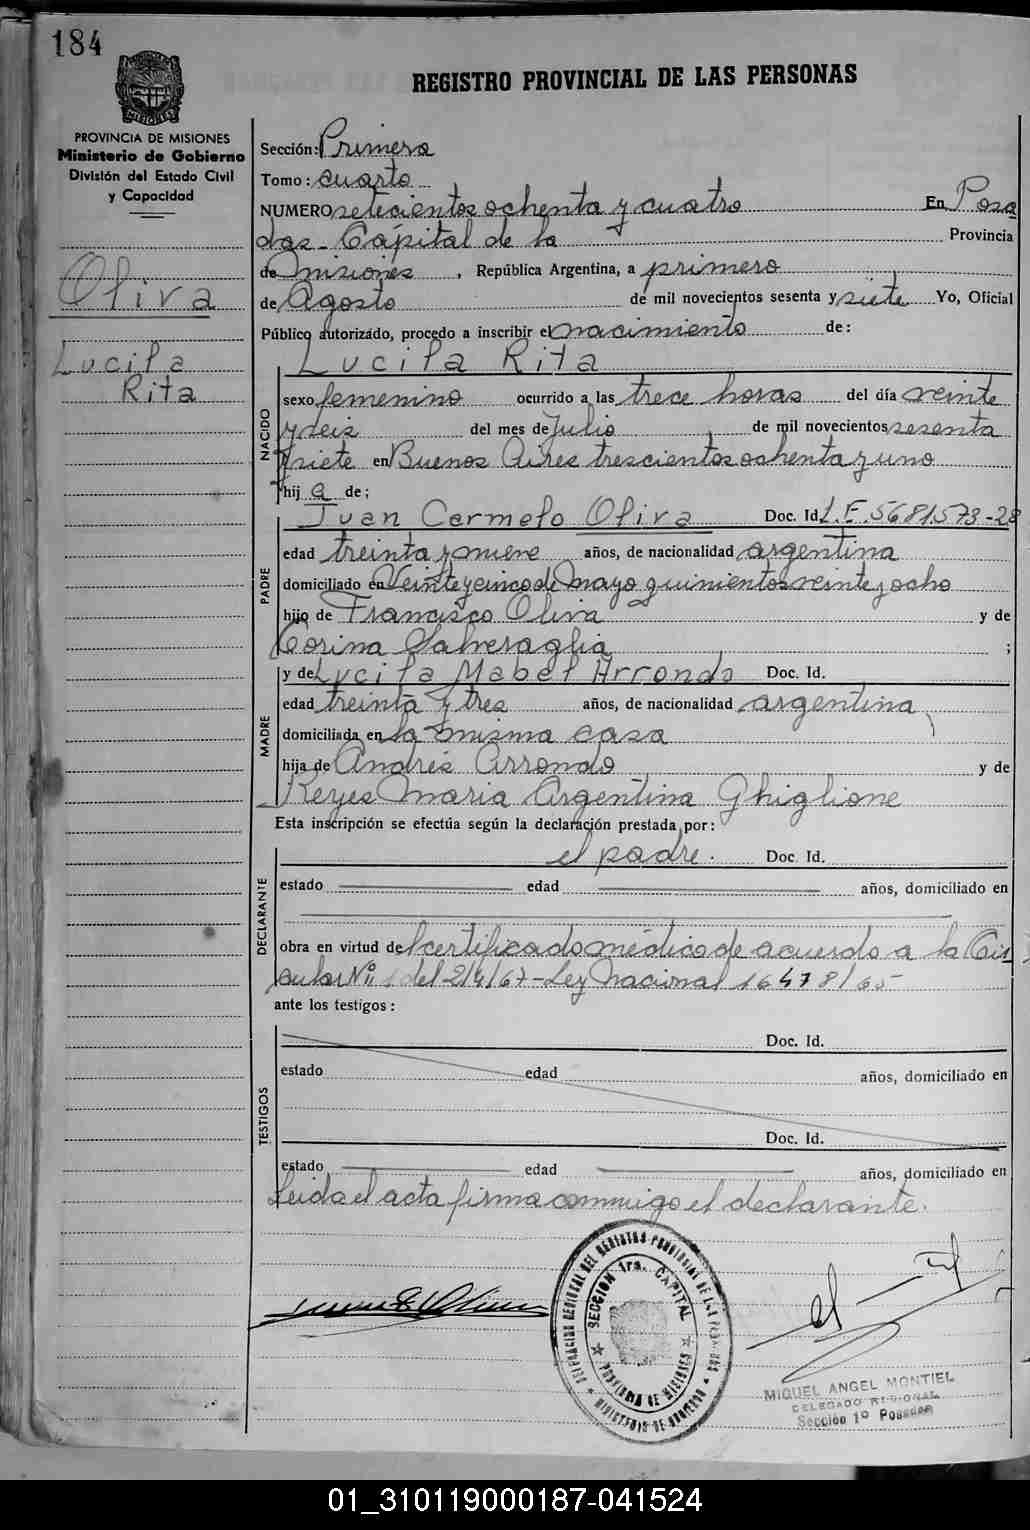 184
REGISTRO PROVINCIAL DE LAS PERSONAS
PROVINCIA DE MISIONES
Ministerio de Gobierno
División del Estado Civil
y Capacidad
Oliva
Lucila
Rita
Sección: Primera
Tomo: cuarto
NUMERO setecientos ochenta y cuatro En Posa
das - Cápital de la Provincia
de Misiones, República Argentina, a primero
de Agosto de mil novecientos sesenta y siete Yo, Oficial
Público autorizado, procedo a inscribir el nacimiento de:
NACIDO
Lucila Rita
sexo femenino ocurrido a las trece horas del día veinte
y seis del mes de Julio de mil novecientos sesenta
y siete en Buenos Aires trescientos ochenta y uno
hij a de;
PADRE
Juan Carmelo Oliva Doc. Id. L.E. 5681.573-28
edad treinta y nueve años, de nacionalidad argentina
domiciliado en Veinte y cinco de Mayo quinientos veinte y ocho
hijo de Francisco Oliva y de
Corina Salveraglia ;
MADRE
y de Lucila Mabel Arrondo Doc. Id.
edad treinta y tres años, de nacionalidad argentina
domiciliada en la misma casa
hija de Andrés Arrondo y de
Reyes Maria Argentina Ghiglione
Esta inscripción se efectúa según la declaración prestada por:
DECLARANTE
el padre. Doc. Id.
estado edad años, domiciliado en
obra en virtud del certificado médico de acuerdo a la Cir
cular Nº 1 del 2/4/67 - Ley Nacional 16478/65
ante los testigos:
TESTIGOS
Doc. Id.
estado edad años, domiciliado en
Doc. Id.
estado edad años, domiciliado en
Leida el acta firma conmigo el declarante.
SECCION 1ra. CAPITAL
PROVINCIA DE MISIONES
MINISTERIO DE GOBIERNO
MIGUEL ANGEL MONTIEL
DELEGADO REGIONAL
Sección 1º Posadas
01_310119000187-041524